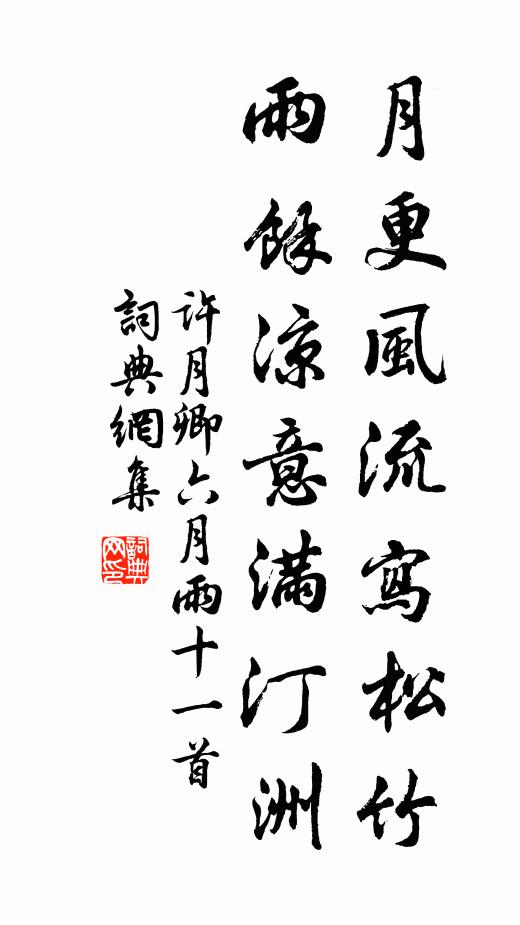 月更風流寫松竹
雨餘涼意滿汀洲
許月卿六月雨十一首
詞典網集
詞典网印